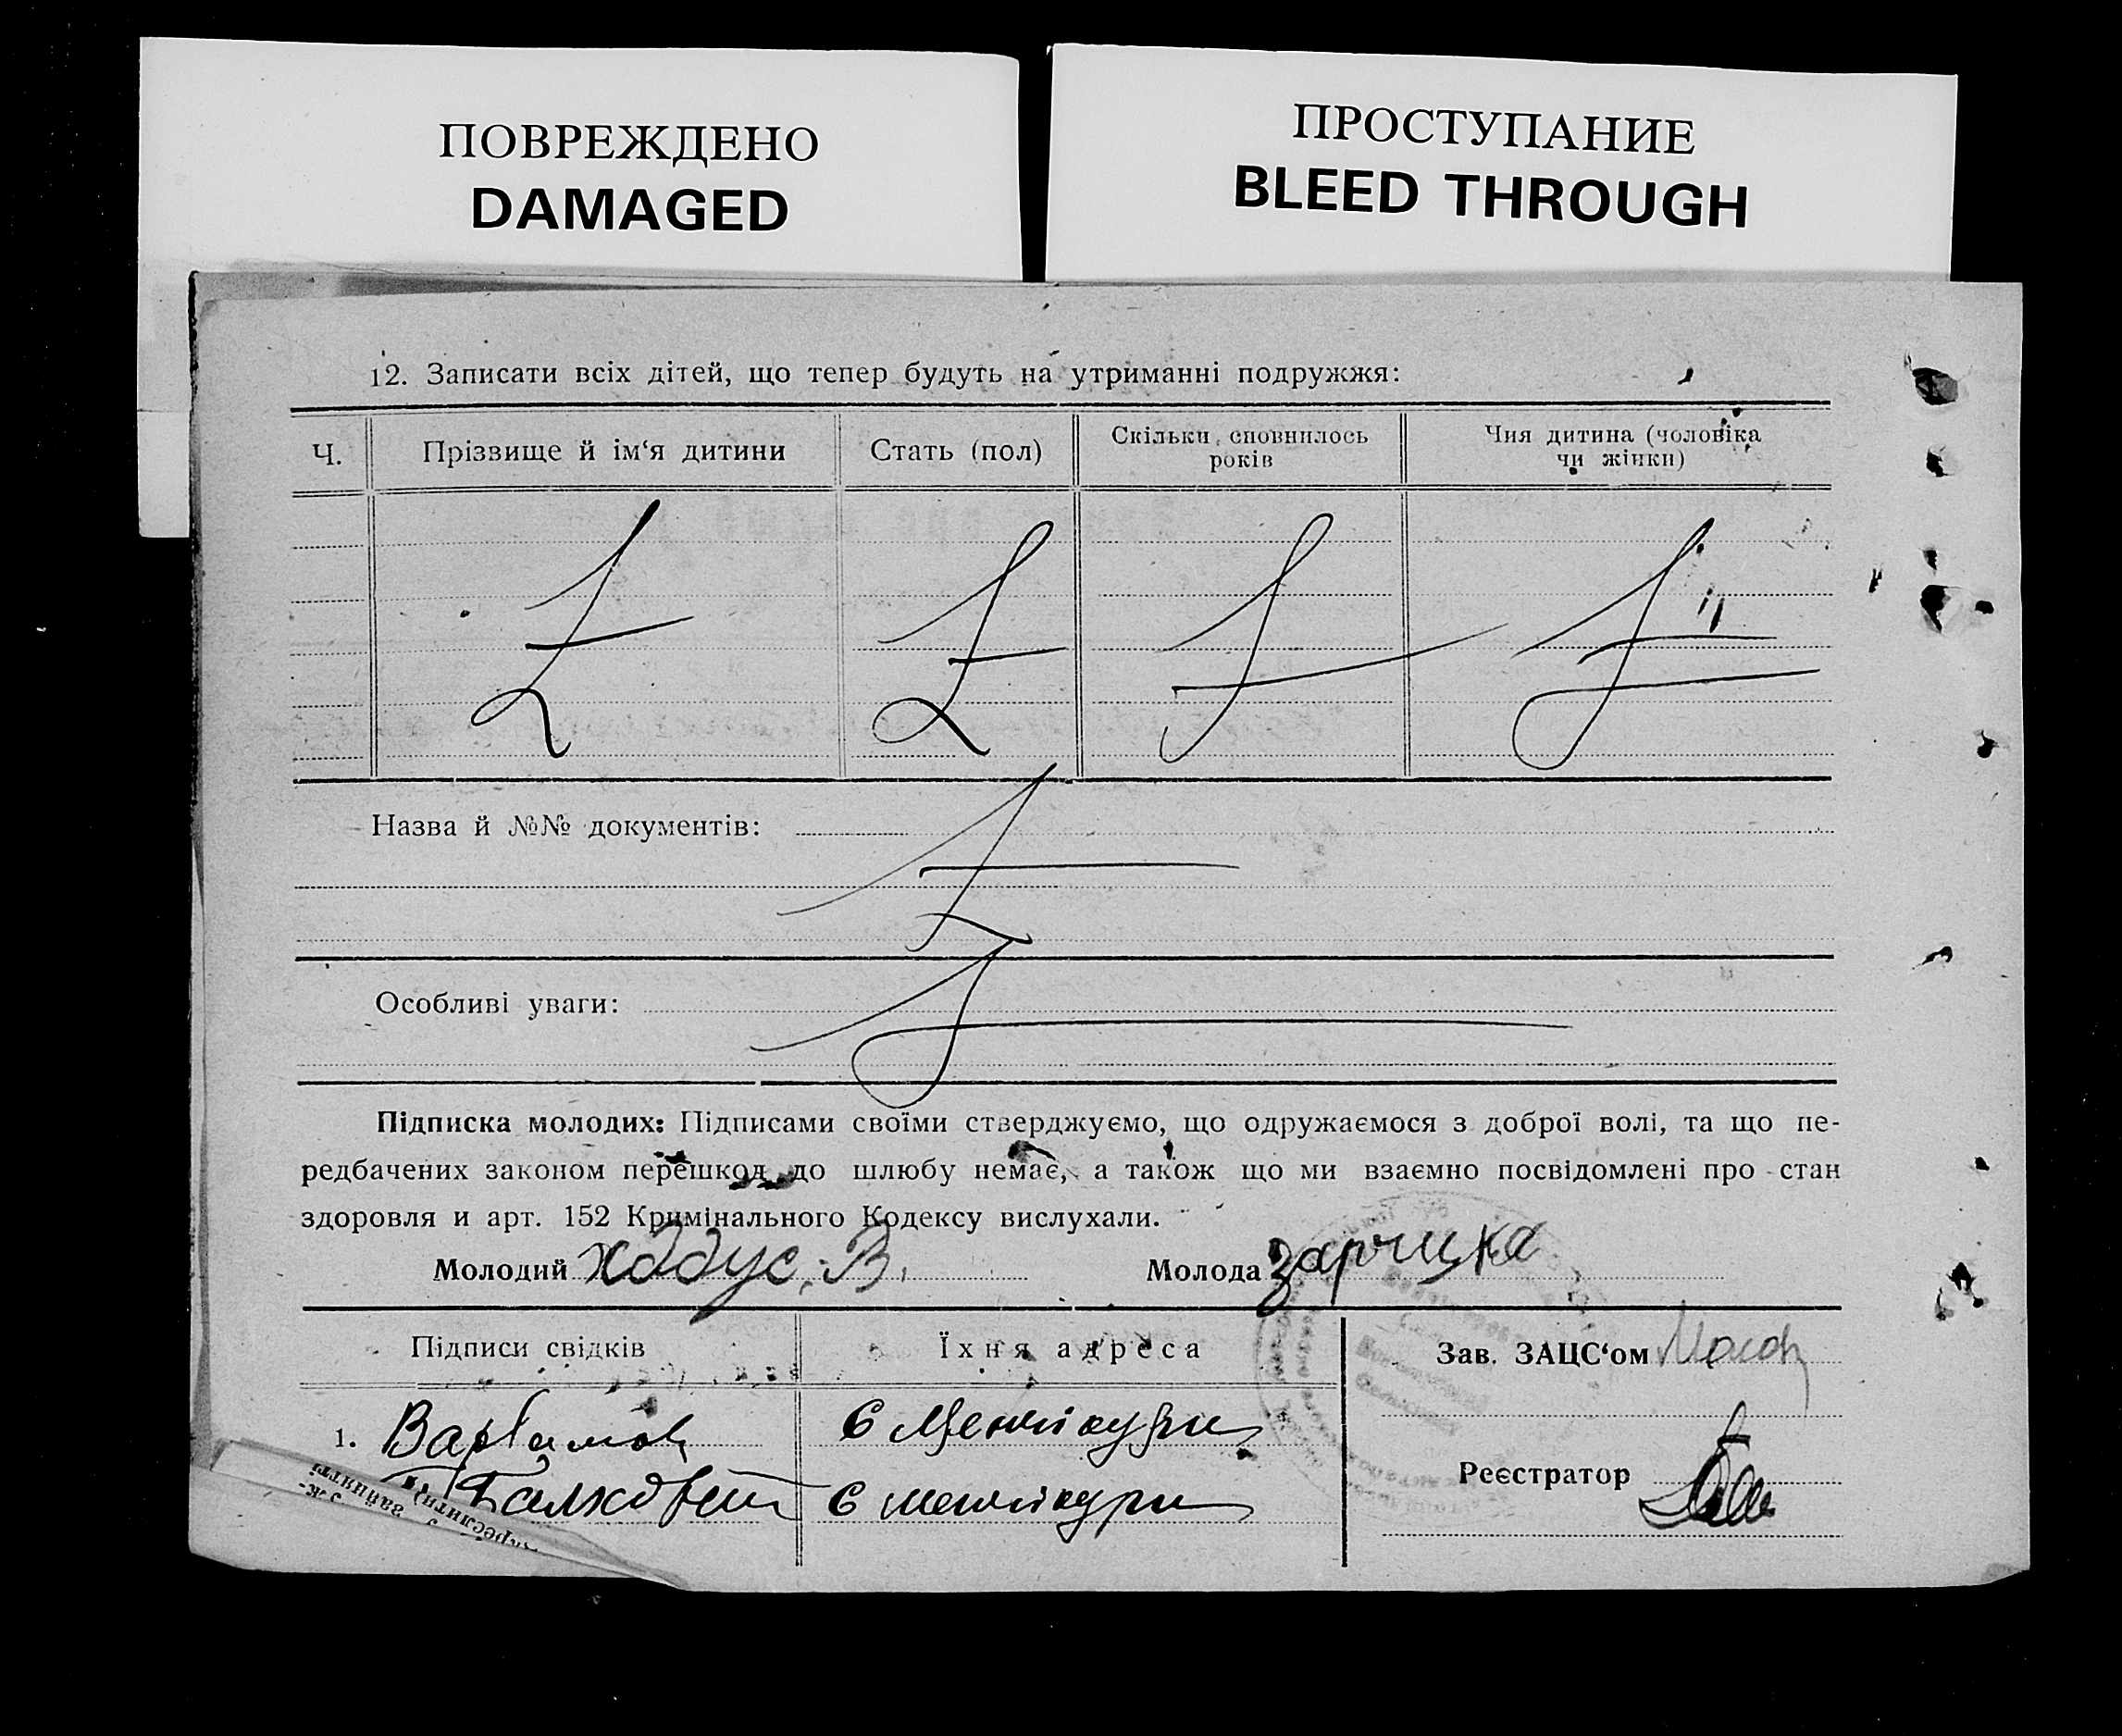 ПОВРЕЖДЕНО
DAMAGED
ПРОСТУПАНИЕ
BLEED THROUGH
12. Записати всіх дітей, що тепер будуть на утриманні подружжя:
Ч.
Прізвище й ім‘я дитини
Стать (пол)
Скільки сповнилось
років
Чия дитина (чоловіка
чи жінки)
Назва й №№ документів:
Особливі уваги:
Підписка молодих: Підписами своїми стверджуємо, що одружаємося з доброї волі, та що пе-
редбачених законом перешкод до шлюбу немає, а також що ми взаємно посвідомлені про стан
здоровля и арт. 152 Кримінального Кодексу вислухали.
Молодий Ходус. В.
Молода Зарицка
Підписи свідків
Їхня адреса
Зав. ЗАЦС‘ом
1.
Реєстратор
зайнятті